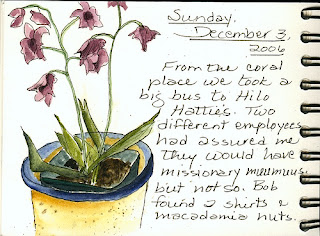 Sunday.
December 3,
2006
From the coral
place we took a
big bus to Hilo
Hatties. Two
different employees
had assured me
they would have
missionary muumuus.
but not so. Bob
found 2 shirts &
macadamia nuts.